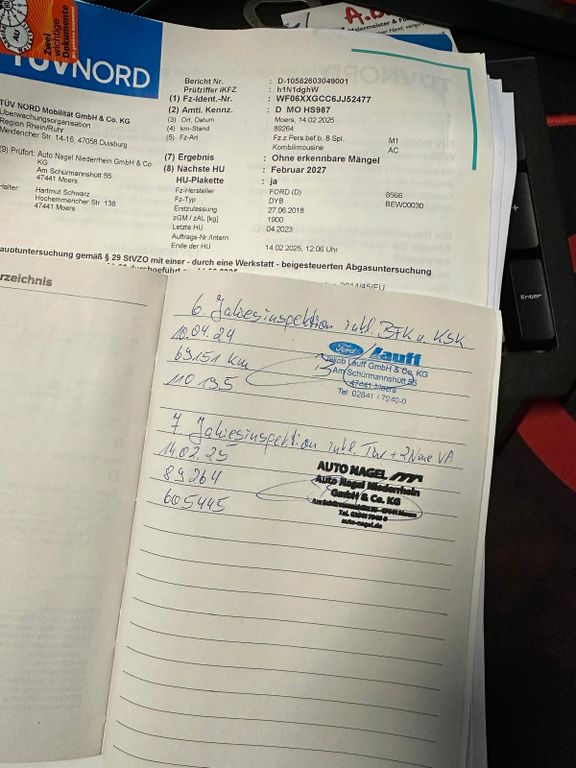 Zwei
wichtige
Dokumente
TÜVNORD
Bericht Nr. : D-10582603049001
Prüfziffer iKFZ : h1N1dghW
(1) Fz-Ident.-Nr. : WF06XXGCC6JJ52477
(2) Amtl. Kennz. : D MO HS987
(3) Ort, Datum : Moers, 14.02.2025
(4) km-Stand : 89264
(5) Fz-Art : Fz.z.Pers.bef.b. 8 Spl. M1
Kombilimousine AC
(7) Ergebnis : Ohne erkennbare Mängel
(8) Nächste HU : Februar 2027
HU-Plakette : ja
Fz-Hersteller : FORD (D) 8566
Fz-Typ : DYB BEW00030
Erstzulassung : 27.06.2018
zGM / zAL [kg] : 1900
Letzte HU : 04.2023
Auftrags-Nr./intern :
Ende der HU : 14.02.2025, 12:06 Uhr
TÜV NORD Mobilität GmbH & Co. KG
Überwachungsorganisation
Region Rhein/Ruhr
Meidericher Str. 14-16, 47058 Duisburg
(9) Prüfort: Auto Nagel Niederrhein GmbH & Co.
KG
Am Schürmannshütt 55
47441 Moers
Halter: Hartmut Schwarz
Hochemmericher Str. 138
47441 Moers
auptuntersuchung gemäß § 29 StVZO mit einer - durch eine Werkstatt - beigesteuerten Abgasuntersuchung
rzeichnis
6. Jahresinspektion inkl. BFK u. KSK
10.04.24
69151 km
110 195
Ford Lauff
Jakob Lauff GmbH & Co. KG
Am Schürmannshütt 55
47441 Moers
Tel. 02841 / 7940-0
7 Jahresinspektion inkl. TÜV + 2 Neue VA
14.02.25
89264
605445
AUTO NAGEL
Auto Nagel Niederrhein
GmbH & Co. KG
Am Schürmannshütt 55 · 47441 Moers
auto-nagel.de
Enter